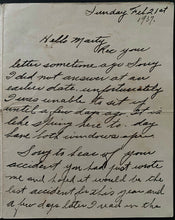 Sunday Feb 21st
1937.
Hello Marty
Rec your
letter sometime ago Sorry
I did not answer at an
earlier date. unfortunately
I was unable to sit up
until a few days ago. It is
like Spring here to day
have both windows open
Sorry to hear of your
accident, you had just wrote
me and hoped it would be the
last accident for this year and
a few days later I read in the